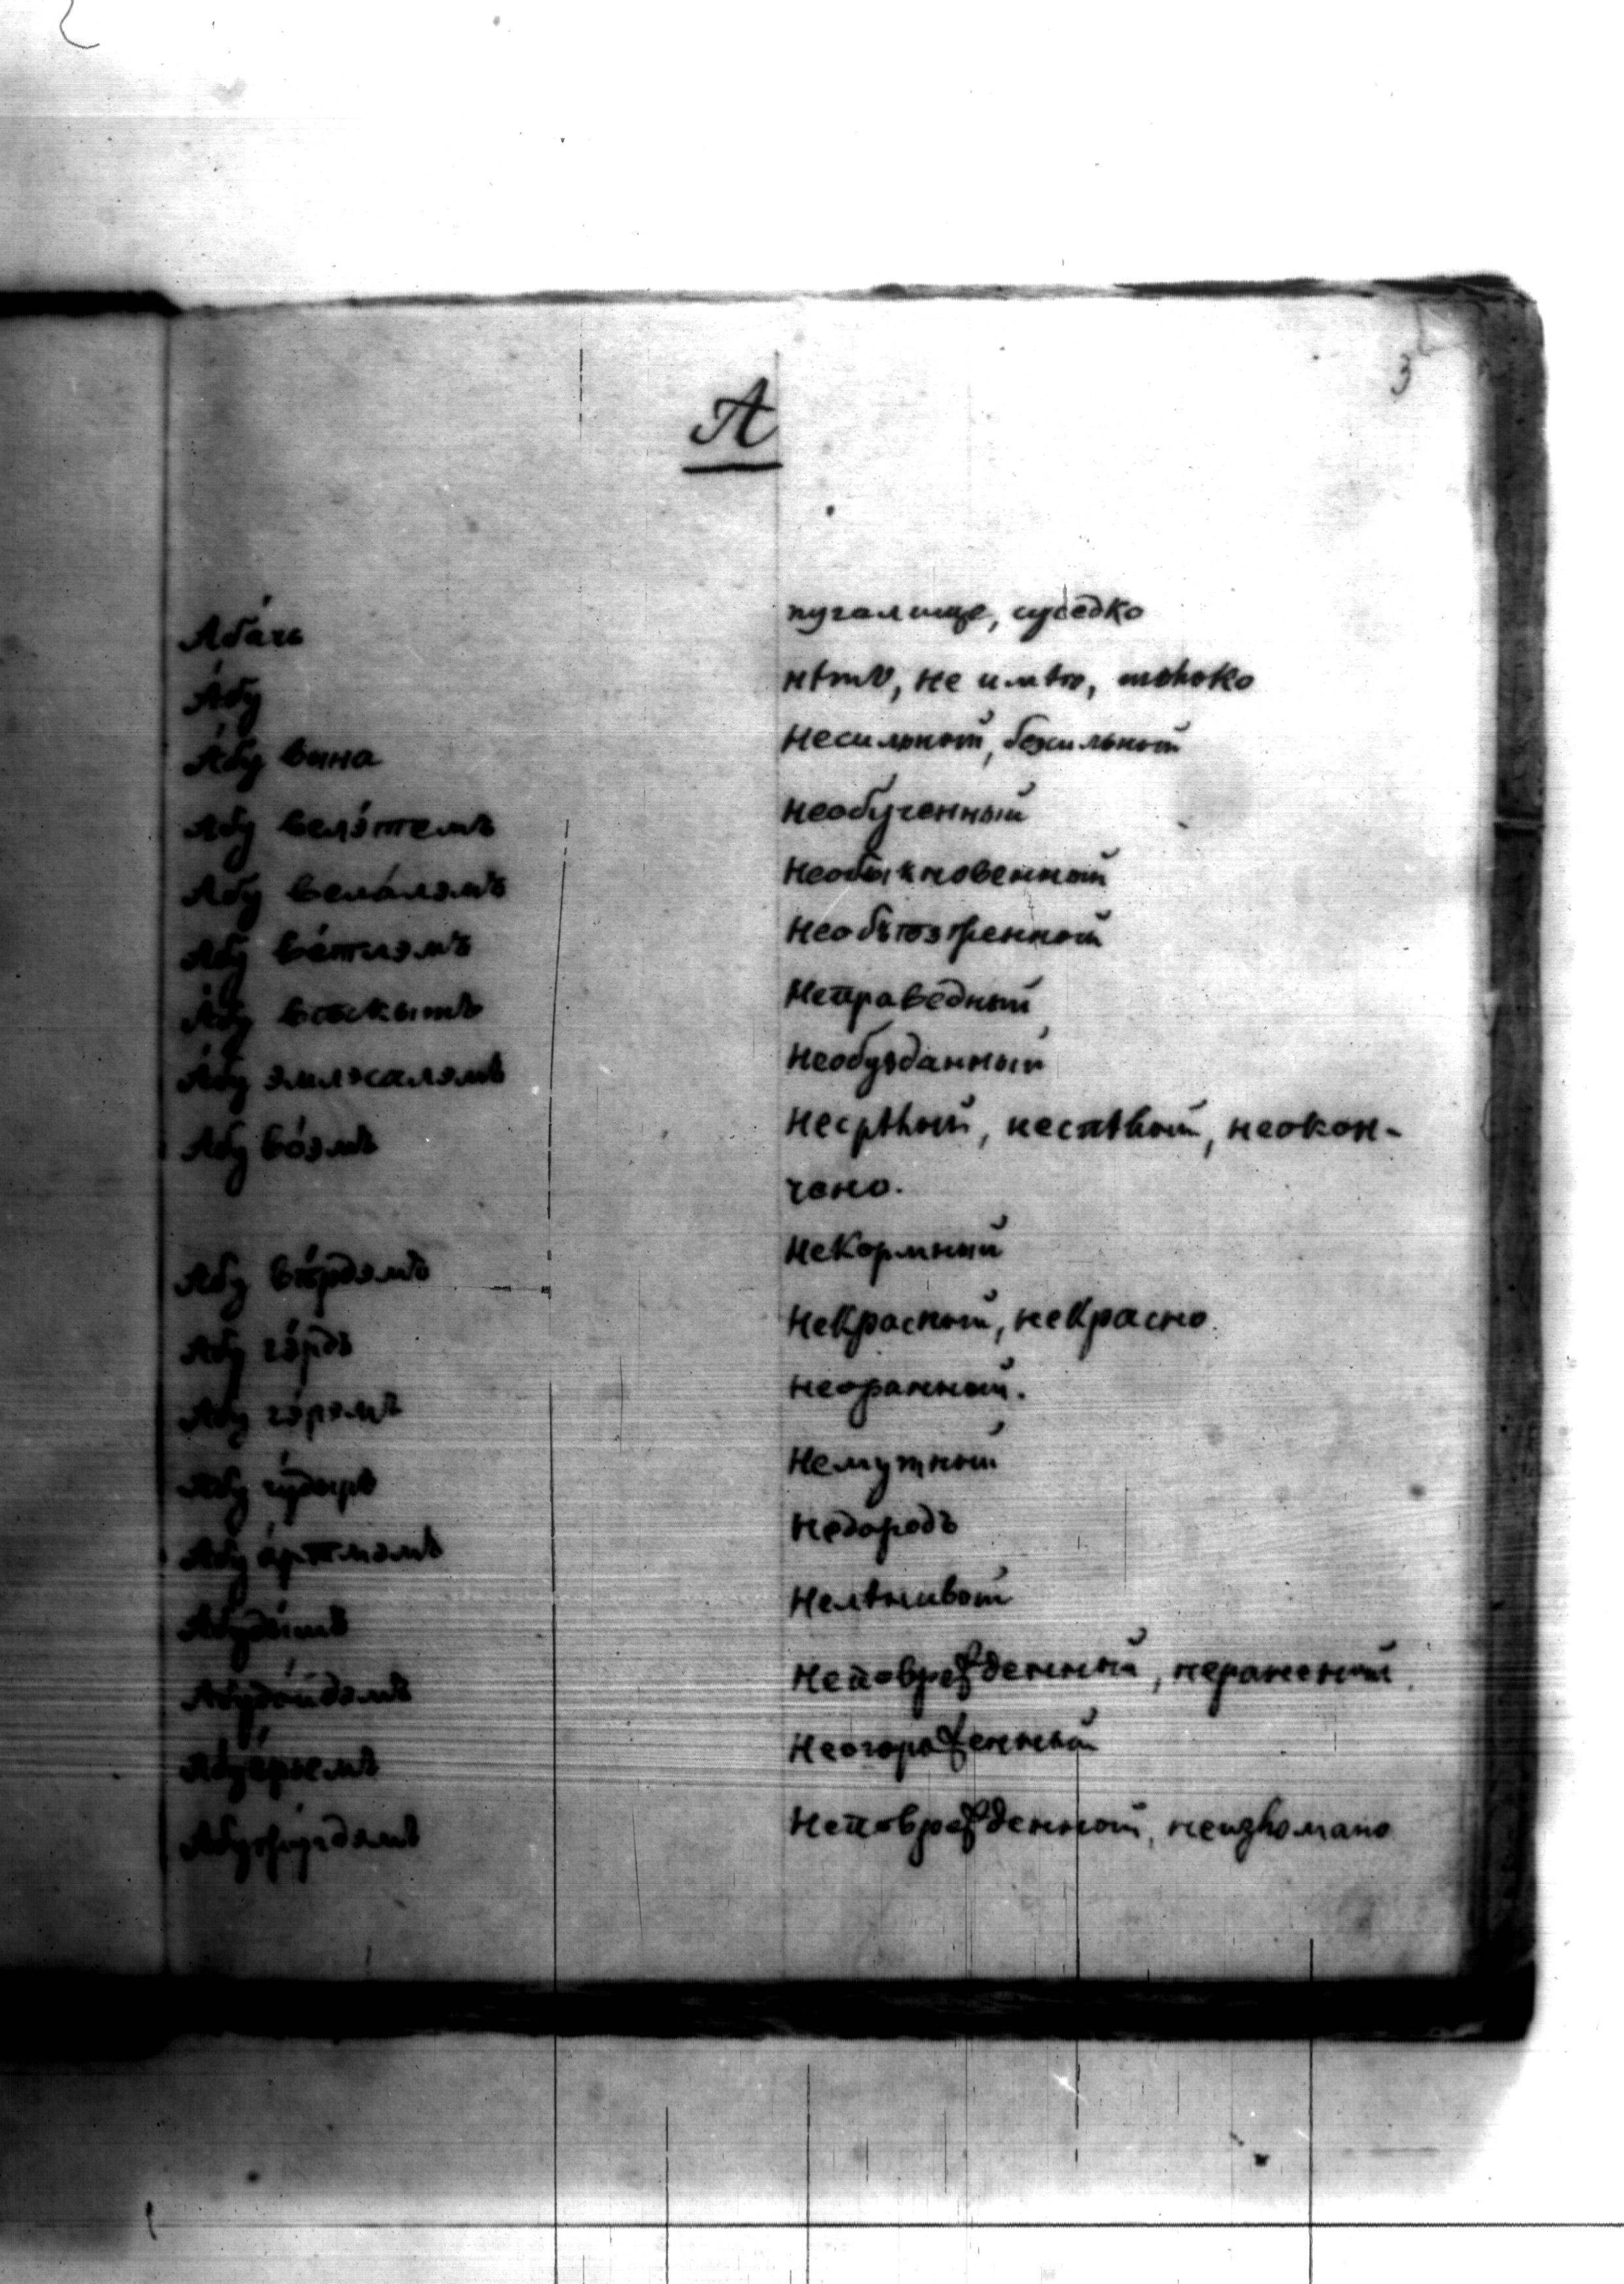 3
А
Аба́чь пугалище, суседко
А́бу нѣтъ, не имѣю, только
А́бу вына несильный, безсильный
Абу велэ́темъ необученный
Абу вела́лэмъ необыкновенный
Абу ве́тлэмъ
Абу веськытъ неправедный
А́бу эмлэсалэмъ необузданный
Абу во́эмъ неспѣлый, неокон-
чено.
Абу вѣ́рдэмъ некормный
Абу гэ́рдъ некрасный, некрасно.
Абу гэ́рэмъ неоранный.
Абу гу́дыръ немутный
Абу а́ртмэмъ недородъ
Абуды́шъ нелѣнивый
Абудо́йдэмъ неповрежденный, нераненый
неогороженный
неповрежденный, неизломано